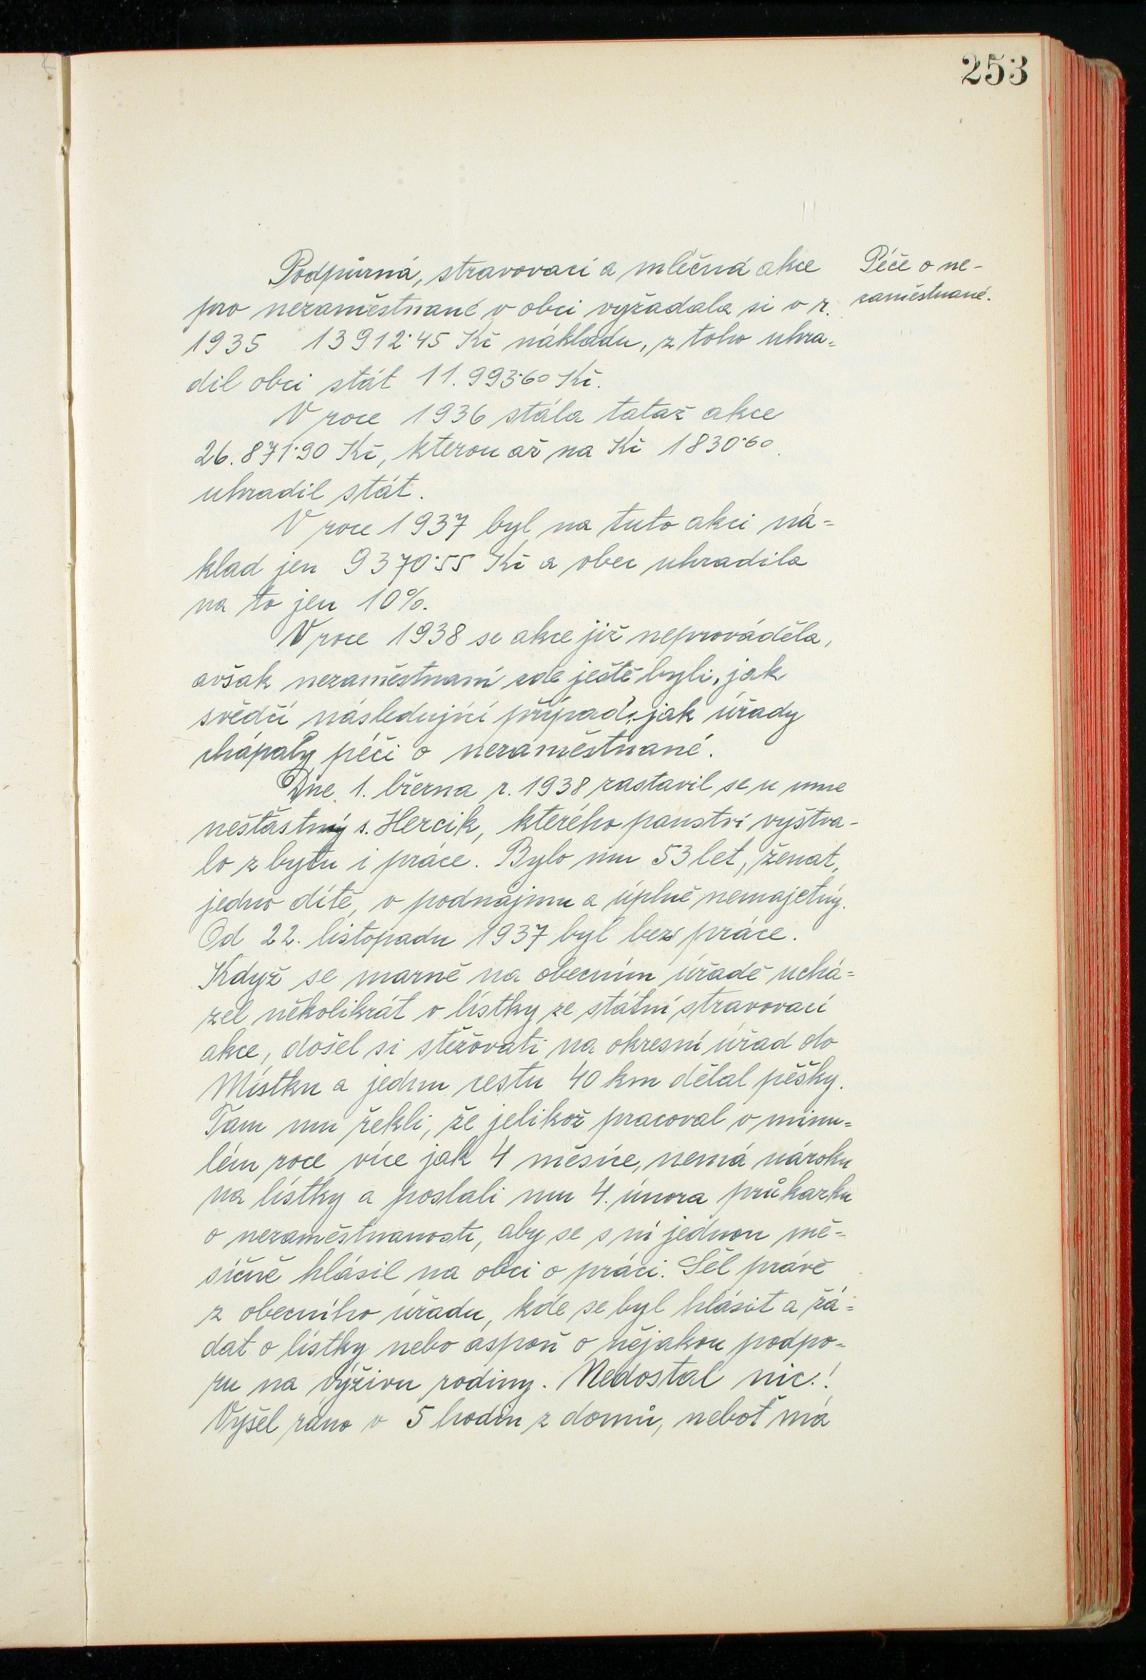 253
Péče o ne-
zaměstnané.
Podpůrná, stravovací a mléčná akce
pro nezaměstnané v obci vyžádala si v r.
1935 13912·45 Kč nákladu, z toho uhra-
dil obci stát 11.993·60 Kč.
V roce 1936 stála tatáž akce
26.871·90 Kč, kterou až na Kč 1830·60
uhradil stát.
V roce 1937 byl na tuto akci ná-
klad jen 9370·55 Kč a obec uhradila
na to jen 10%.
V roce 1938 se akce již neprováděla,
avšak nezaměstnaní zde ještě byli, jak
svědčí následující případ, jak úřady
chápaly péči o nezaměstnané.
Dne 1. března r. 1938 zastavil se u mne
nešťastný s. Hercik, kterého panstvi vyštva-
lo z bytu i práce. Bylo mu 53 let, ženat,
jedno dítě, v podnájmu a úplně nemajetný.
Od 22. listopadu 1937 byl bez práce.
Když se marně na obecním úřadě uchá-
zel několikrát o lístky ze státní stravovací
akce, došel si stěžovati na okresní úřad do
Místku a jednu cestu 40 km dělal pěšky.
Tam mu řekli, že jelikož pracoval v minu-
lém roce více jak 4 měsíce, nemá nároku
na lístky a poslali mu 4. února průkazku
o nezaměstnanosti, aby se s ní jednou mě-
síčně hlásil na obci o práci. Šel právě
z obecního úřadu, kde se byl hlásit a žá-
dat o lístky nebo aspoň o nějakou podpo-
ru na výživu rodiny. Nedostal nic.!
Vyšel ráno v 5 hodin z domů, neboť má